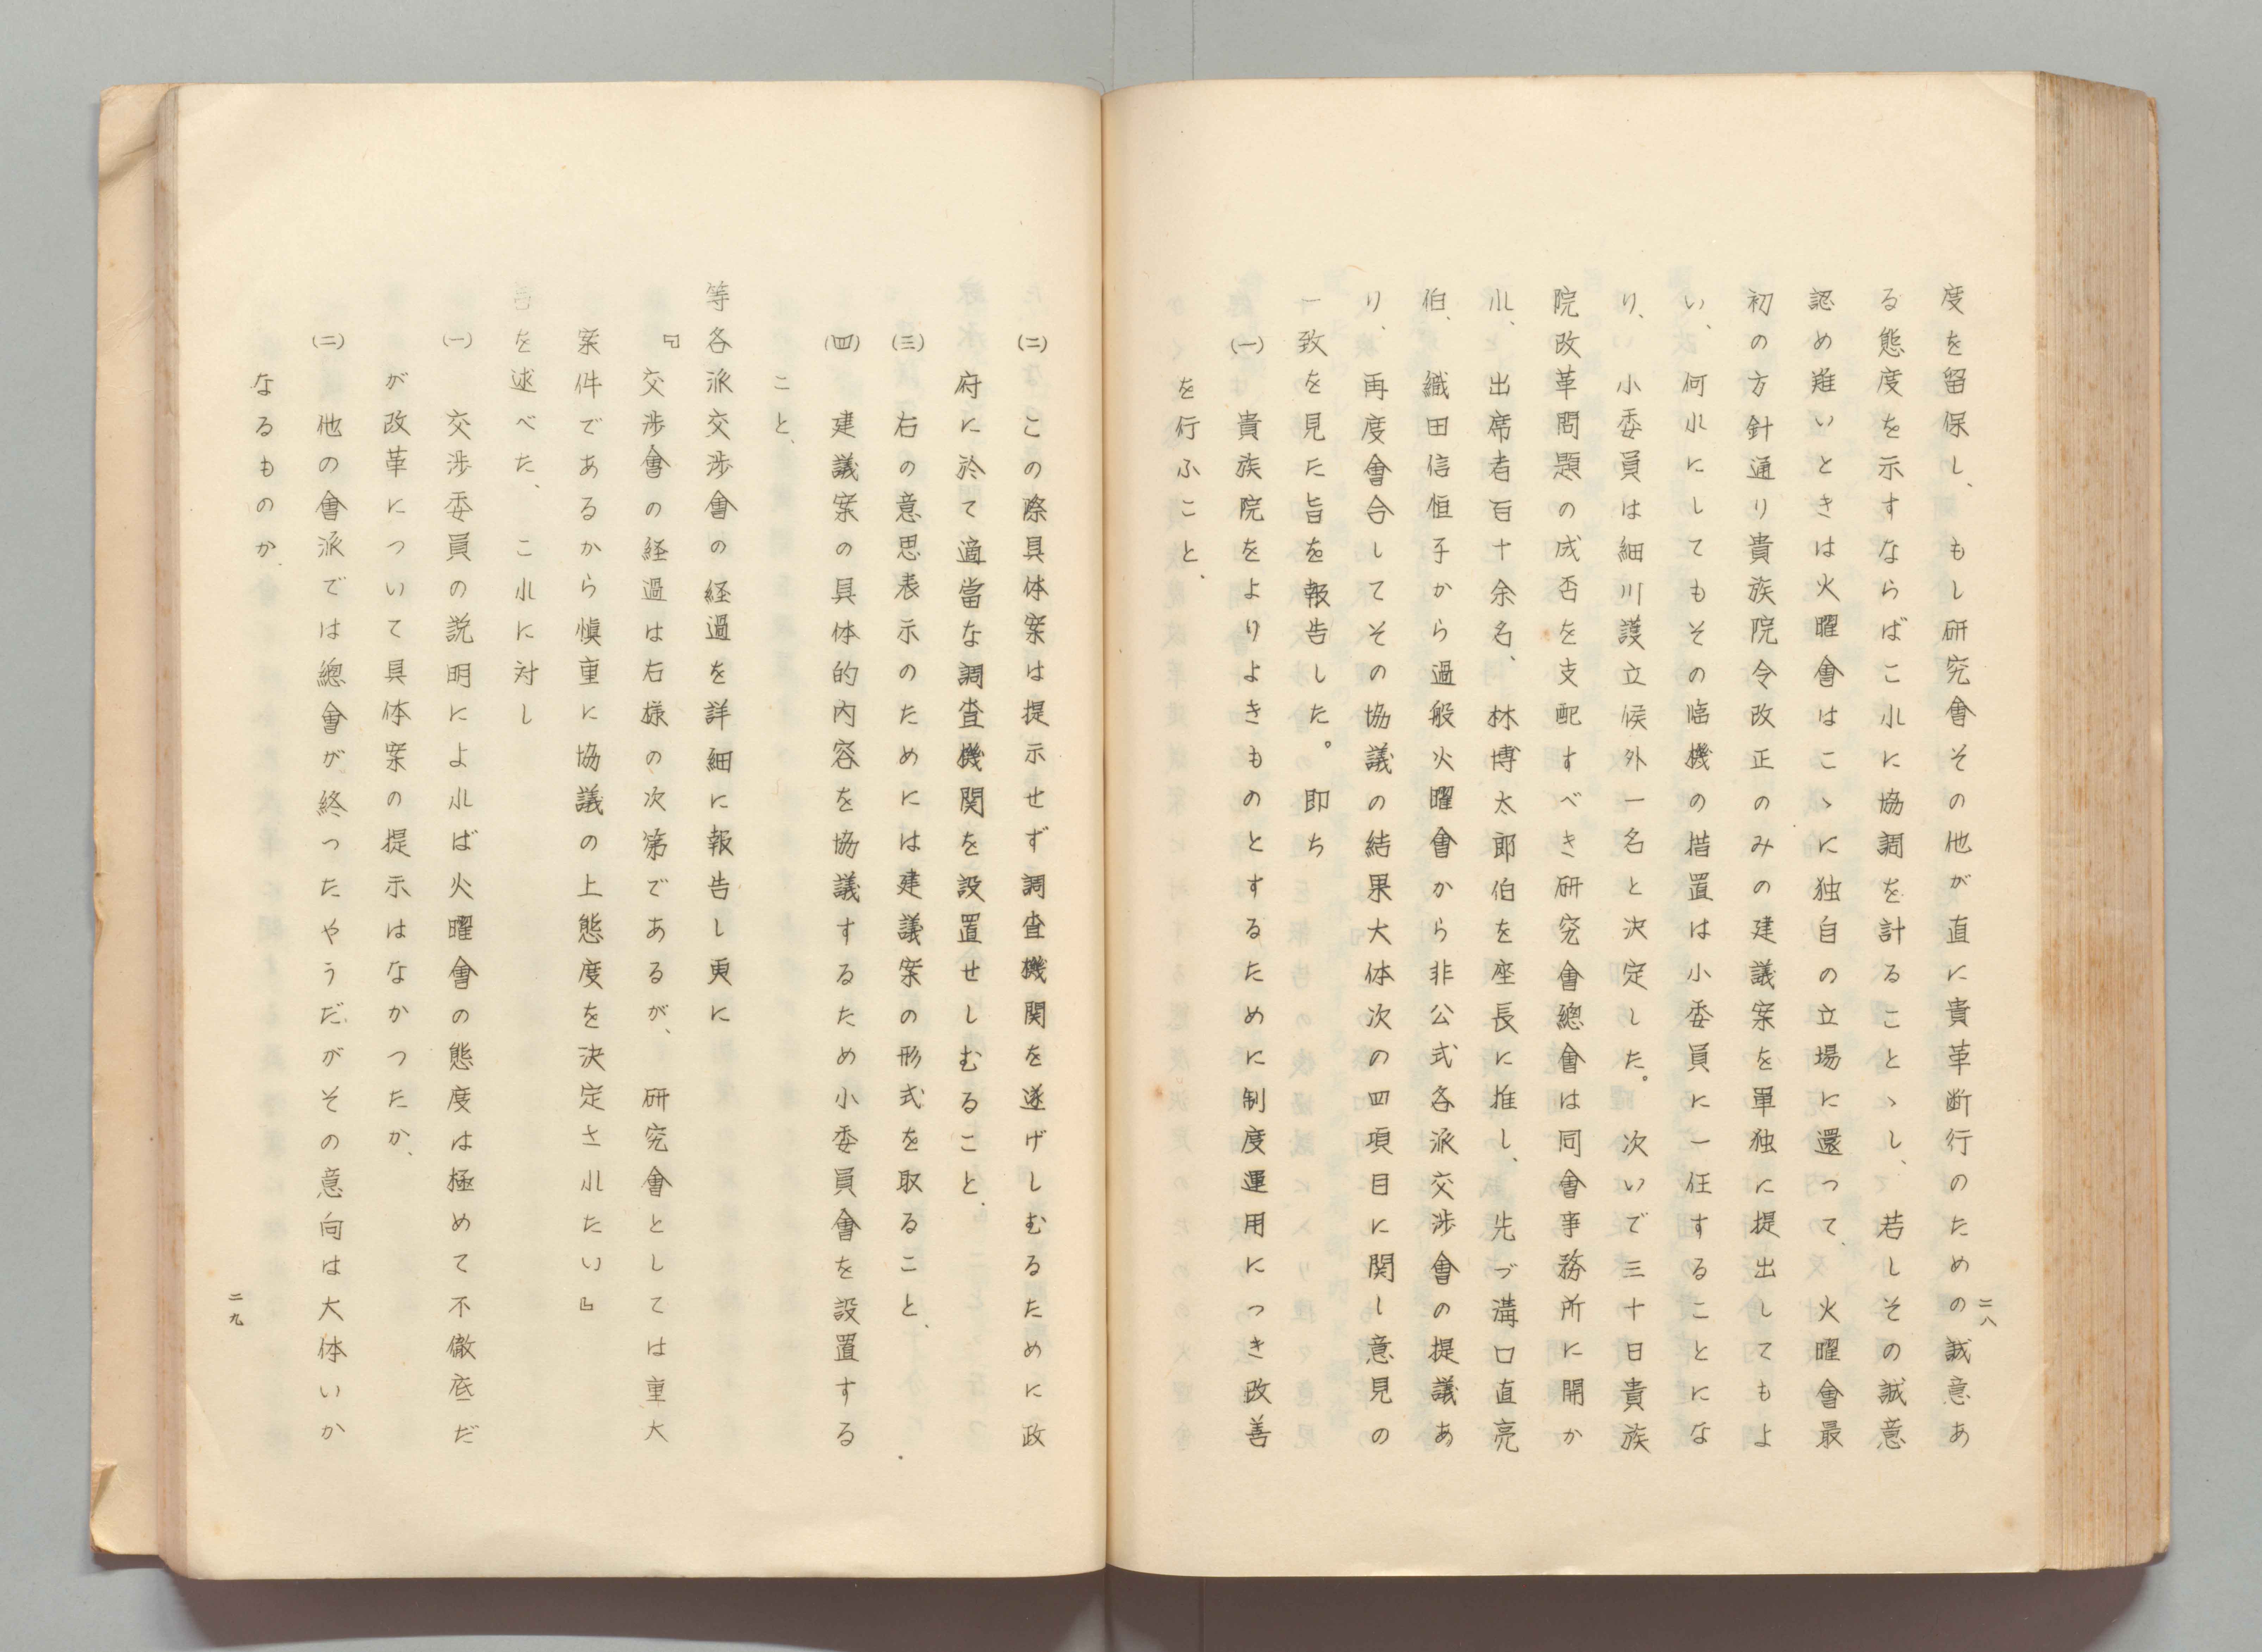 度を留保し、もし研究會その他が直に貴革断行のための誠意あ
る態度を示すならばこれに協調を計ることゝし、若しその誠意
認め難いときは火曜會はこゝに独自の立場に還って、火曜會最
初の方針通り貴族院令改正のみの建議案を單独に提出してもよ
い、何れにしてもその臨機の措置は小委員に一任することにな
り、小委員は細川護立侯外一名と決定した。次いで三十日貴族
院改革問題の成否を支配すべき研究會總會は同會事務所に開か
れ、出席者百十余名、林博太郎伯を座長に推し、先づ溝口直亮
伯、織田信恒子から過般火曜會から非公式各派交渉會の提議あ
り、再度會合してその協議の結果大体次の四項目に関し意見の
一致を見た旨を報告した。即ち
(一)　貴族院をよりよきものとするために制度運用につき改善
を行ふこと、
二八
(二)　この際具体案は提示せず調査機関を遂げしむるために政
府に於て適當な調査機関を設置せしむること、
(三)　右の意思表示のためには建議案の形式を取ること、
(四)　建議案の具体的内容を協議するため小委員會を設置する
こと、
等各派交渉會の経過を詳細に報告し更に
『交渉會の経過は右様の次第であるが、研究會としては重大
案件であるから愼重に協議の上態度を決定されたい』
旨を述べた、これに対し
(一)　交渉委員の説明によれば火曜會の態度は極めて不徹底だ
が改革について具体案の提示はなかつたか、
(二)　他の會派では總會が終ったやうだがその意向は大体いか
なるものか、
二九